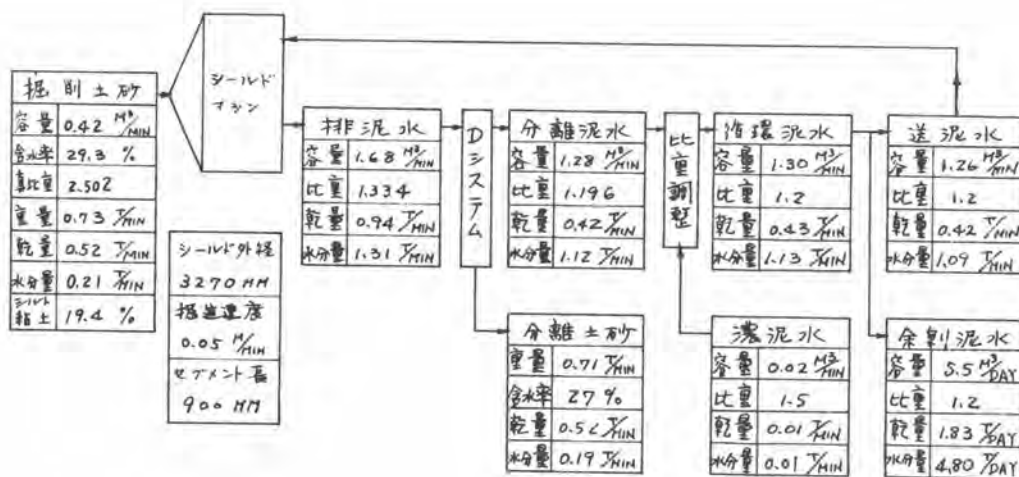 シールド
マシン
掘削土砂
容量 0.42 M³/MIN
含水率 29.3 %
真比重 2.502
重量 0.73 T/MIN
乾量 0.52 T/MIN
水分量 0.21 T/MIN
シルト
粘土 19.4 %
シールド外径
3270 MM
掘進速度
0.05 M/MIN
セグメント長
900 MM
排泥水
容量 1.68 M³/MIN
比重 1.334
乾量 0.94 T/MIN
水分量 1.31 T/MIN
Dシステム
分離泥水
容量 1.28 M³/MIN
比重 1.196
乾量 0.42 T/MIN
水分量 1.12 T/MIN
分離土砂
重量 0.71 T/MIN
含水率 27 %
乾量 0.52 T/MIN
水分量 0.19 T/MIN
比重調整
循環泥水
容量 1.30 M³/MIN
比重 1.2
乾量 0.43 T/MIN
水分量 1.13 T/MIN
濃泥水
容量 0.02 M³/MIN
比重 1.5
乾量 0.01 T/MIN
水分量 0.01 T/MIN
送泥水
容量 1.26 M³/MIN
比重 1.2
乾量 0.42 T/MIN
水分量 1.09 T/MIN
余剰泥水
容量 5.5 M³/DAY
比重 1.2
乾量 1.83 T/DAY
水分量 4.80 T/DAY